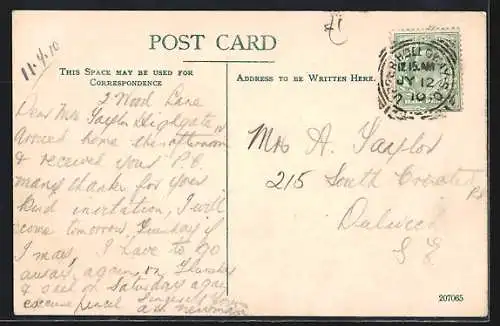 £1
POST CARD
11.7.10
THIS SPACE MAY BE USED FOR
CORRESPONDENCE
ADDRESS TO BE WRITTEN HERE.
12.15 AM
JY 12
10
2 Wood Lane
Highgate N
Dear Mrs Taylor
Arrived home this afternoon
& received your P.C.
many thanks for your
kind invitation, I will
come tomorrow, Tuesday if
I may, I have to go
away again on Thursday
& sail on Saturday again
excuse pencil
A.W. Newman
Mrs A. Taylor
215 South Croxted
Rd
Dulwich
S E
207065